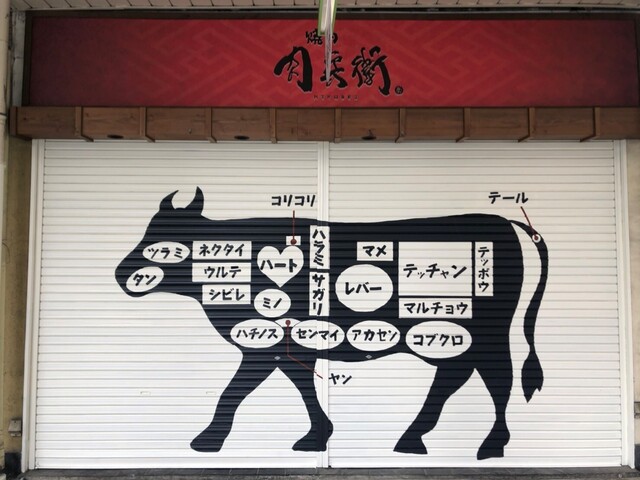 焼肉
肉兵衛
コリコリ
テール
ツラミ
ネクタイ
ハート
ハラミ
マメ
テッチャン
テッポウ
タン
ウルテ
シビレ
ミノ
サガリ
レバー
マルチョウ
ハチノス
センマイ
アカセン
コブクロ
ヤン